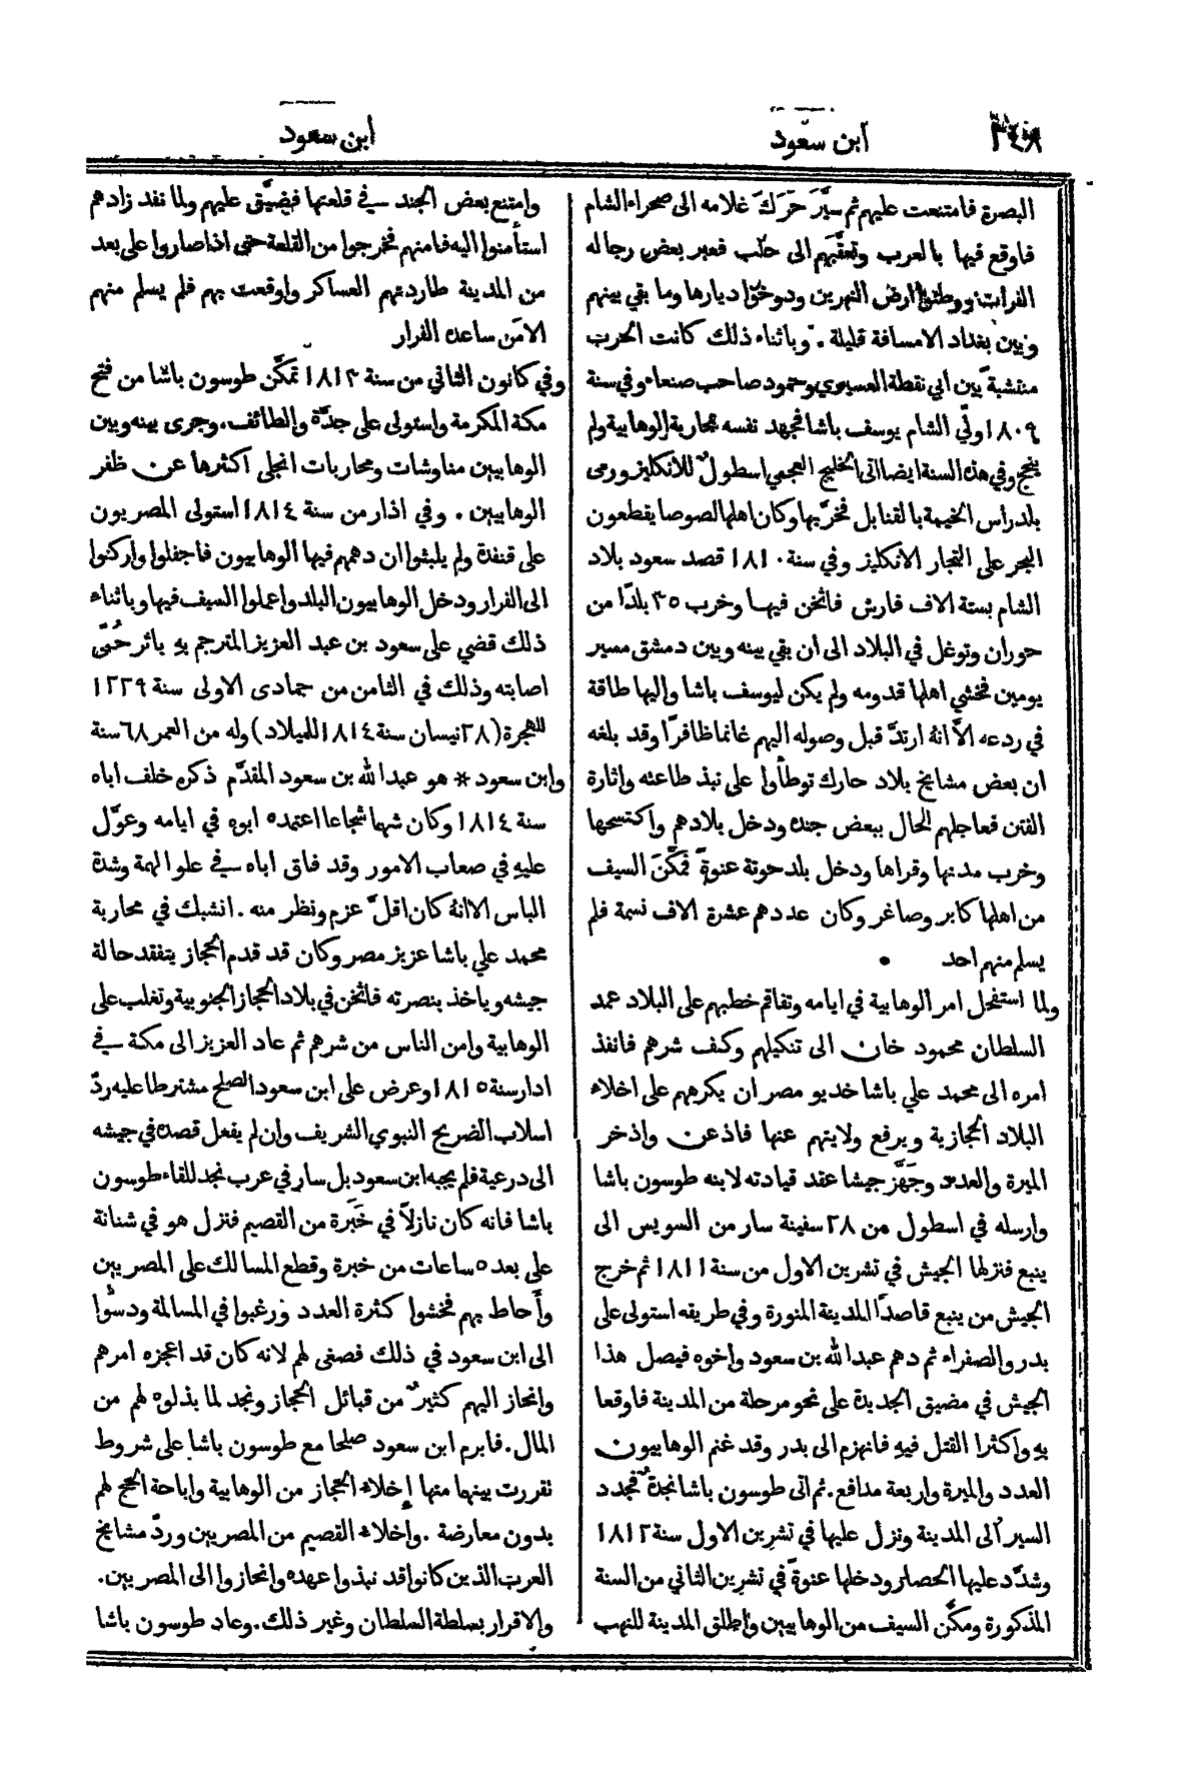 ٣٤٨
ابن سعود
ابن سعود
البصرة فامتنعت عليهم ثم سيَّر حَرَكَ غلامه الى صحراء الشام
فاوقع فيها بالعرب وتعقَّبهم الى حلب فعبر بعض رجاله
الفرات ووطئوا ارض النهرين ودوخوا ديارها وما بقي بينهم
وبين بغداد الا مسافة قليلة . وباثناء ذلك كانت الحرب
منتشبة بين ابي نقطة العسيري وحمود صاحب صنعاء وفي سنة
١٨٠٩ ولّي الشام يوسف باشا فجهد نفسه بمحاربة الوهابية ولم
ينجح وفي هذه السنة ايضا اتى الخليج العجمي اسطولٌ للانكليز ورمى
بلد راس الخيمة بالقنابل فخرَّبها وكان اهلها لصوصا يقطعون
البحر على التجار الانكليز وفي سنة ١٨١٠ قصد سعود بلاد
الشام بستة الاف فارس فاثخن فيها وخرب ٣٥ بلدًا من
حوران وتوغل في البلاد الى ان بقي بينه وبين دمشق مسير
يومين فخشي اهلها قدومه ولم يكن ليوسف باشا واليها طاقة
في ردعه الَّا انهُ ارتدَّ قبل وصوله اليهم غانما ظافرًا وقد بلغه
ان بعض مشايخ بلاد حارك توطأوا على نبذ طاعته واثارة
الفتن فعاجلهم الحال ببعض جنده ودخل بلادهم واكتسحها
وخرب مدنها وقراها ودخل بلد حوتة عنوةً فمكَّنَ السيف
من اهلها كابر وصاغر وكان عددهم عشرة الاف نسمة فلم
يسلم منهم احد
ولما استفحل امر الوهابية في ايامه وتفاقم خطبهم على البلاد عمد
السلطان محمود خان الى تنكيلهم وكف شرهم فانفذ
امره الى محمد علي باشا خديو مصر ان يكرههم على اخلاء
البلاد الحجازية ويرفع ولايتهم عنها فاذعن واذخر
الميرة والعدد وجَهَّز جيشا عقد قيادته لابنه طوسون باشا
وارسله في اسطول من ٢٨ سفينة سار من السويس الى
ينبع فنزلها الجيش في تشرين الاول من سنة ١٨١١ ثم خرج
الجيش من ينبع قاصدًا المدينة المنورة وفي طريقه استولى على
بدر والصفراء ثم دهم عبدالله بن سعود واخوه فيصل هذا
الجيش في مضيق الجديدة على نحو مرحلة من المدينة فاوقعا
بهِ واكثرا القتل فيهِ فانهزم الى بدر وقد غنم الوهابيون
العدد والميرة واربعة مدافع . ثم اتى طوسون باشا نجدةٌ فجدد
السير الى المدينة ونزل عليها في تشرين الاول سنة ١٨١٢
وشدَّد عليها الحصار ودخلها عنوةً في تشرين الثاني من السنة
المذكورة ومكَّن السيف من الوهابيين واطلق المدينة للنهب
وامتنع بعض الجند في قلعتها فضيَّق عليهم ولما نفد زادهم
استأمنوا اليه فامنهم فخرجوا من القلعة حتى اذا صاروا على بعد
من المدينة طاردتهم العساكر واوقعت بهم فلم يسلم منهم
الا من ساعده الفرار
وفي كانون الثاني من سنة ١٨١٣ تمكَّن طوسون باشا من فتح
مكة المكرمة واستولى على جدَّة والطائف . وجرى بينه وبين
الوهابيين مناوشات ومحاربات انجلى اكثرها عن ظفر
الوهابيين . وفي اذار من سنة ١٨١٤ استولى المصريون
على قنفدة ولم يلبثوا ان دهمهم فيها الوهابيون فاجفلوا واركنوا
الى الفرار ودخل الوهابيون البلد واعملوا السيف فيها وباثناء
ذلك قضي على سعود بن عبد العزيز المترجم بهِ باثر حُمَّى
اصابته وذلك في الثامن من جمادى الاولى سنة ١٢٢٩
للهجرة (٢٨ نيسان سنة ١٨١٤ للميلاد) وله من العمر ٦٨ سنة
وابن سعود * هو عبدالله بن سعود المقدَّم ذكره خلف اباه
سنة ١٨١٤ وكان شهما شجاعا اعتمده ابوه في ايامه وعوَّل
عليهِ في صعاب الامور وقد فاق اباه في علو الهمة وشدة
الباس الا انهُ كان اقلَّ عزم ونظر منه . انشبك في محاربة
محمد علي باشا عزيز مصر وكان قد قدم الحجاز يتفقد حالة
جيشه وياخذ بنصرته فاثخن في بلاد الحجاز الجنوبية وتغلب على
الوهابية وامن الناس من شرهم ثم عاد العزيز الى مكة في
ادار سنة ١٨١٥ وعرض على ابن سعود الصلح مشترطا عليه ردّ
اسلاب الضريح النبوي الشريف وان لم يفعل قصده في جيشه
الى درعية فلم يجبه ابن سعود بل سار في عرب نجد للقاء طوسون
باشا فانه كان نازلاً في خَبَرة من القصيم فنزل هو في شنانة
على بعد ٥ ساعات من خبرة وقطع المسالك على المصريين
وأحاط بهم فخشوا كثرة العدد ورغبوا في المسالمة ودسُّوا
الى ابن سعود في ذلك فصغى لهم لانه كان قد اعجزه امرهم
وانحاز اليهم كثيرٌ من قبائل الحجاز ونجد لما بذلوه لهم من
المال . فابرم ابن سعود صلحا مع طوسون باشا على شروط
تقررت بينهما منها إخلاء الحجاز من الوهابية واباحة الحج لهم
بدون معارضة . واخلاء القصيم من المصريين وردّ مشايخ
العرب الذين كانوا قد نبذوا عهده وانحازوا الى المصريين .
والاقرار بسلطة السلطان وغير ذلك . وعاد طوسون باشا